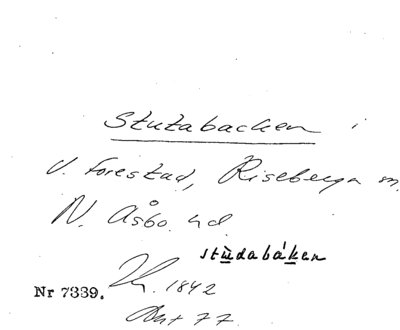 Stutabacken i
V. Forestad, Riseberga sn.
N. Åsbo hd.
stùdabáken
Nr 7339. 1842
77